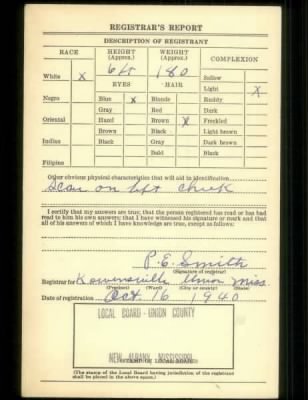 REGISTRAR'S REPORT
DESCRIPTION OF REGISTRANT
RACE HEIGHT (Approx.) WEIGHT (Approx.) COMPLEXION
6 ft 180
White X Sallow
EYES HAIR Light X
Negro Blue X Blonde Ruddy
Gray Red Dark
Oriental Hazel Brown X Freckled
Brown Black Light brown
Indian Black Gray Dark brown
Bald Black
Filipino
Other obvious physical characteristics that will aid in identification
Scar on left cheek
I certify that my answers are true; that the person registered has read or has had
read to him his own answers; that I have witnessed his signature or mark and that
all of his answers of which I have knowledge are true, except as follows:
P. E. Smith
(Signature of registrar)
Registrar for Union Miss.
(Precinct) (Ward) (City or county) (State)
Date of registration Oct. 16 1940
LOCAL BOARD - UNION COUNTY
NEW ALBANY, MISSISSIPPI
(STAMP OF LOCAL BOARD)
(The stamp of the Local Board having jurisdiction of the registrant
shall be placed in the above space.)